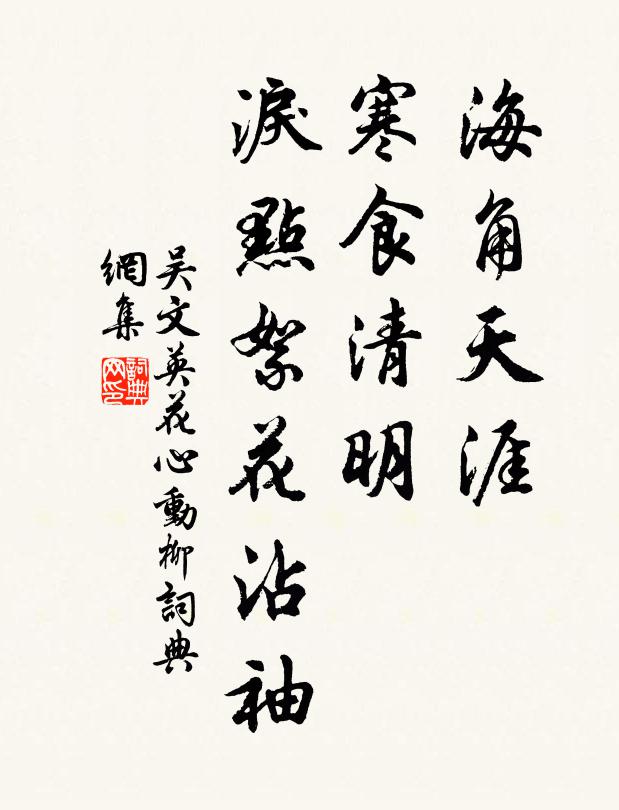 海角天涯
寒食清明
淚點絮花沾袖
吴文英花心動柳詞典
網集
詞典
网印